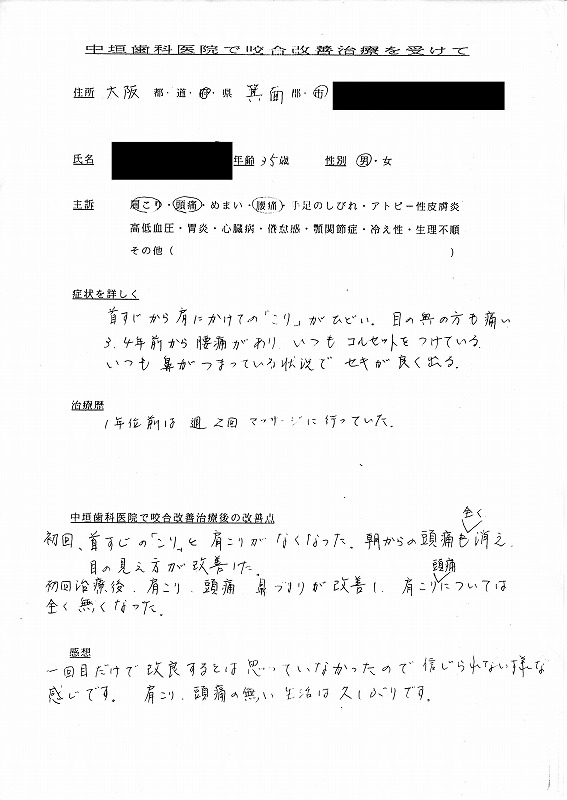 中垣歯科医院で咬合改善治療を受けて
住所 大阪 都・道・府・県 箕面 郡・市
氏名 年齢 35歳 性別 男・女
主訴 肩こり・頭痛・めまい・腰痛・手足のしびれ・アトピー性皮膚炎
高低血圧・胃炎・心臓病・倦怠感・顎関節症・冷え性・生理不順
その他( )
症状を詳しく
首すじから肩にかけての「こり」がひどい。目の奥の方も痛い
3.4年前から腰痛があり、いつもコルセットをつけている。
いつも鼻がつまっている状況でセキが良く出る。
治療歴
1年位前は週2回マッサージに行っていた。
中垣歯科医院で咬合改善治療後の改善点
全く
初回、首すじの「こり」と肩こりがなくなった。朝からの頭痛も消え、
目の見え方が改善した。
頭痛
初回治療後、肩こり、頭痛、鼻づまりが改善し、肩こりについては
全く無くなった。
感想
一回目だけで改良するとは思っていなかったので信じられない様な
感じです。 肩こり、頭痛の無い生活は久しぶりです。